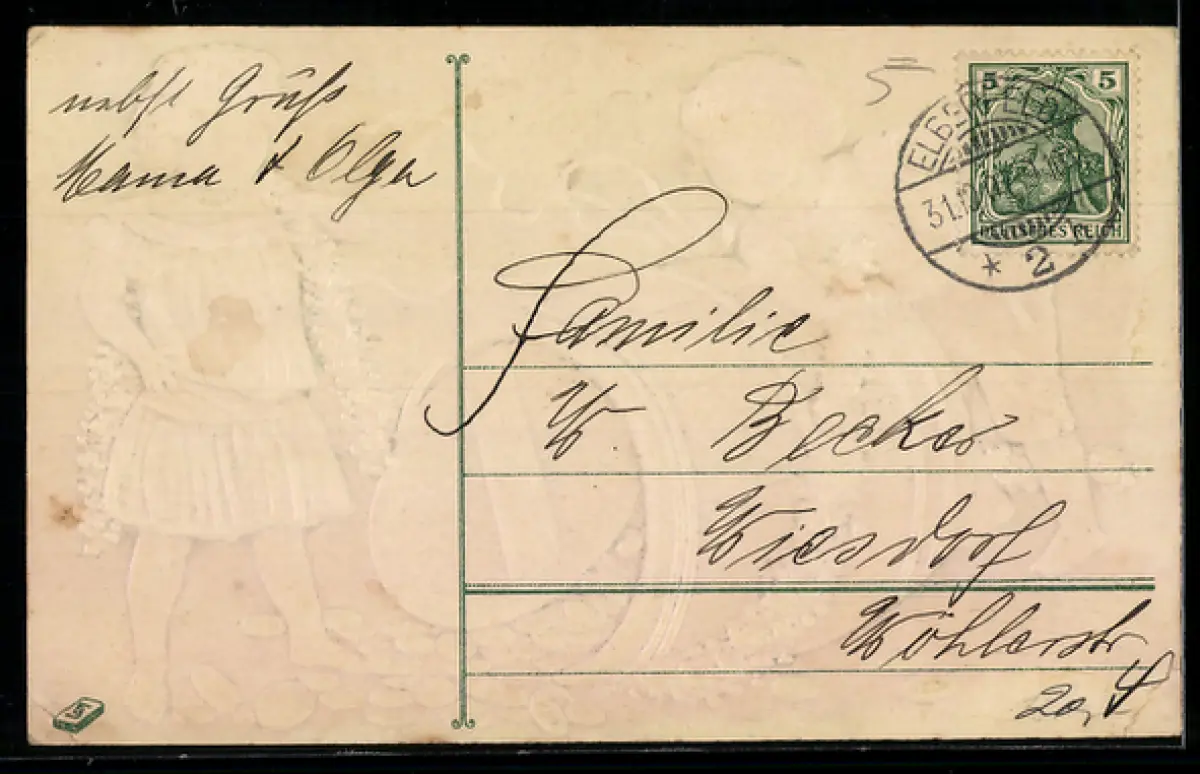 nebst Grüß
Mama & Olga
5
5 5
ELBERFELD
DEUTSCHES REICH
* 2
Familie
W. Becker
Wiesdorf
Wöhlerstr
20,
5